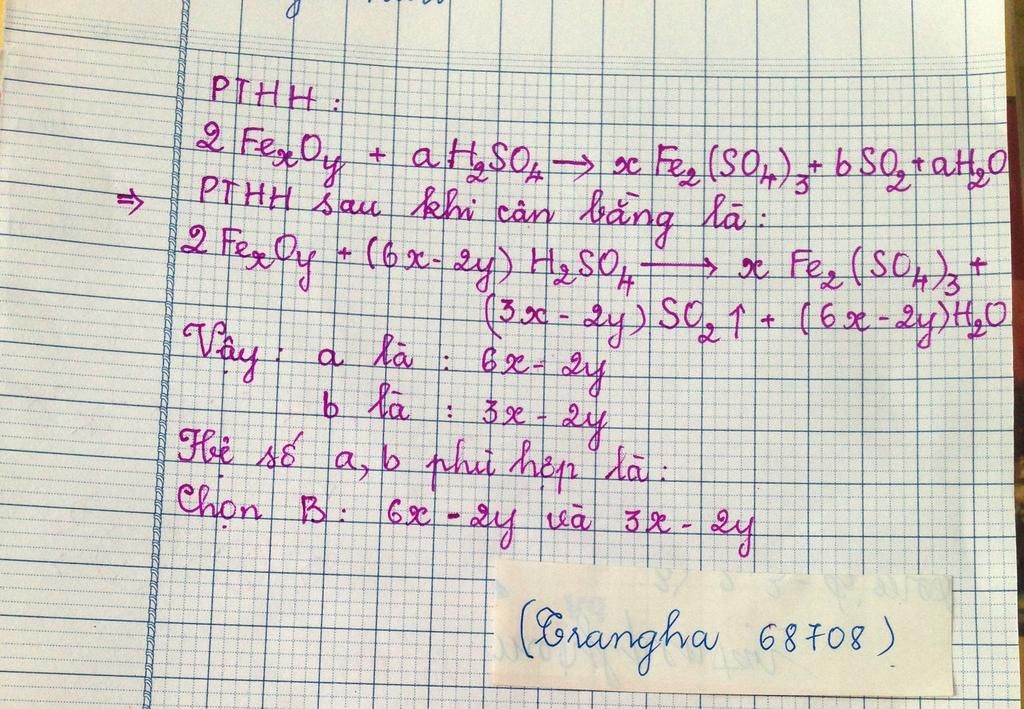 PTHH :
2 FexOy + a H2SO4 → x Fe2(SO4)3 + b SO2 + a H2O
⇒ PTHH sau khi cân bằng là :
2 FexOy + (6x - 2y) H2SO4 → x Fe2(SO4)3 +
(3x - 2y) SO2 ↑ + (6x - 2y) H2O
Vậy : a là : 6x - 2y
b là : 3x - 2y
Hệ số a, b phù hợp là :
Chọn B : 6x - 2y và 3x - 2y
(Trangha 68708)